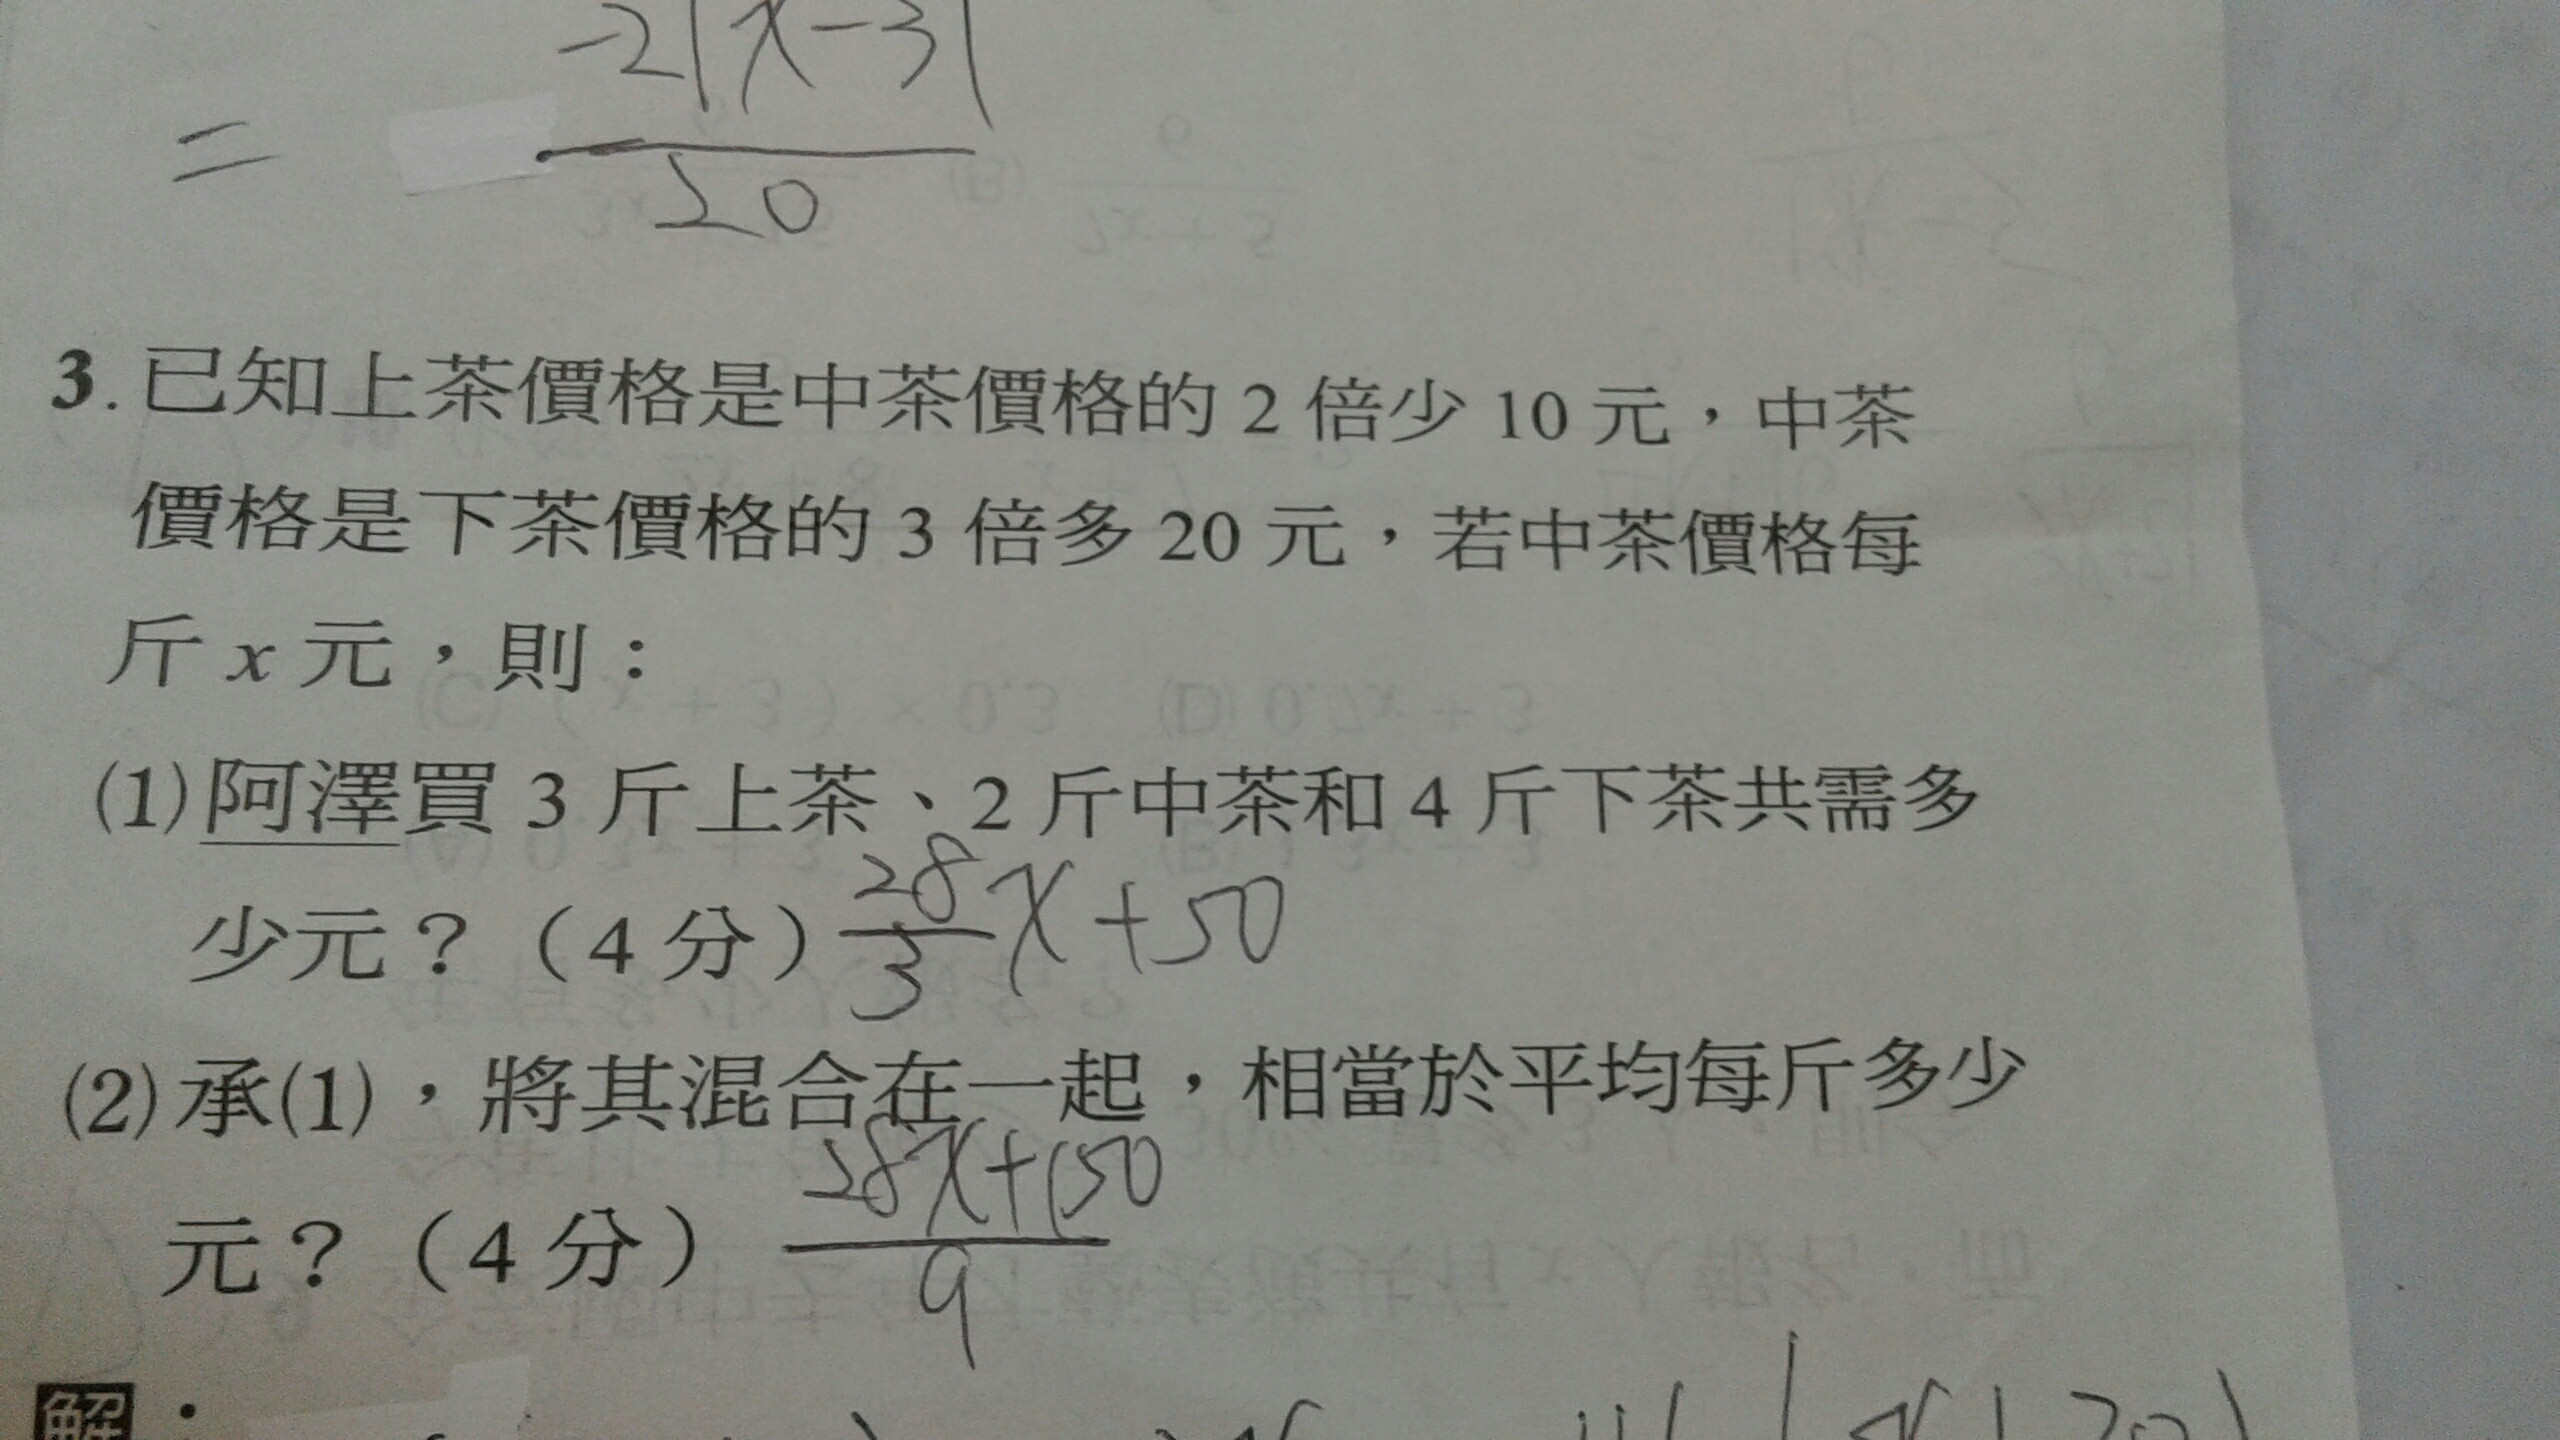 -21x-31
=
20
3.已知上茶價格是中茶價格的 2 倍少 10 元，中茶
價格是下茶價格的 3 倍多 20 元，若中茶價格每
斤 x 元，則：
(1)阿澤買 3 斤上茶、2 斤中茶和 4 斤下茶共需多
少元？（4 分）28/3 x+50
(2)承(1)，將其混合在一起，相當於平均每斤多少
28x+150
元？（4 分）
9
解：